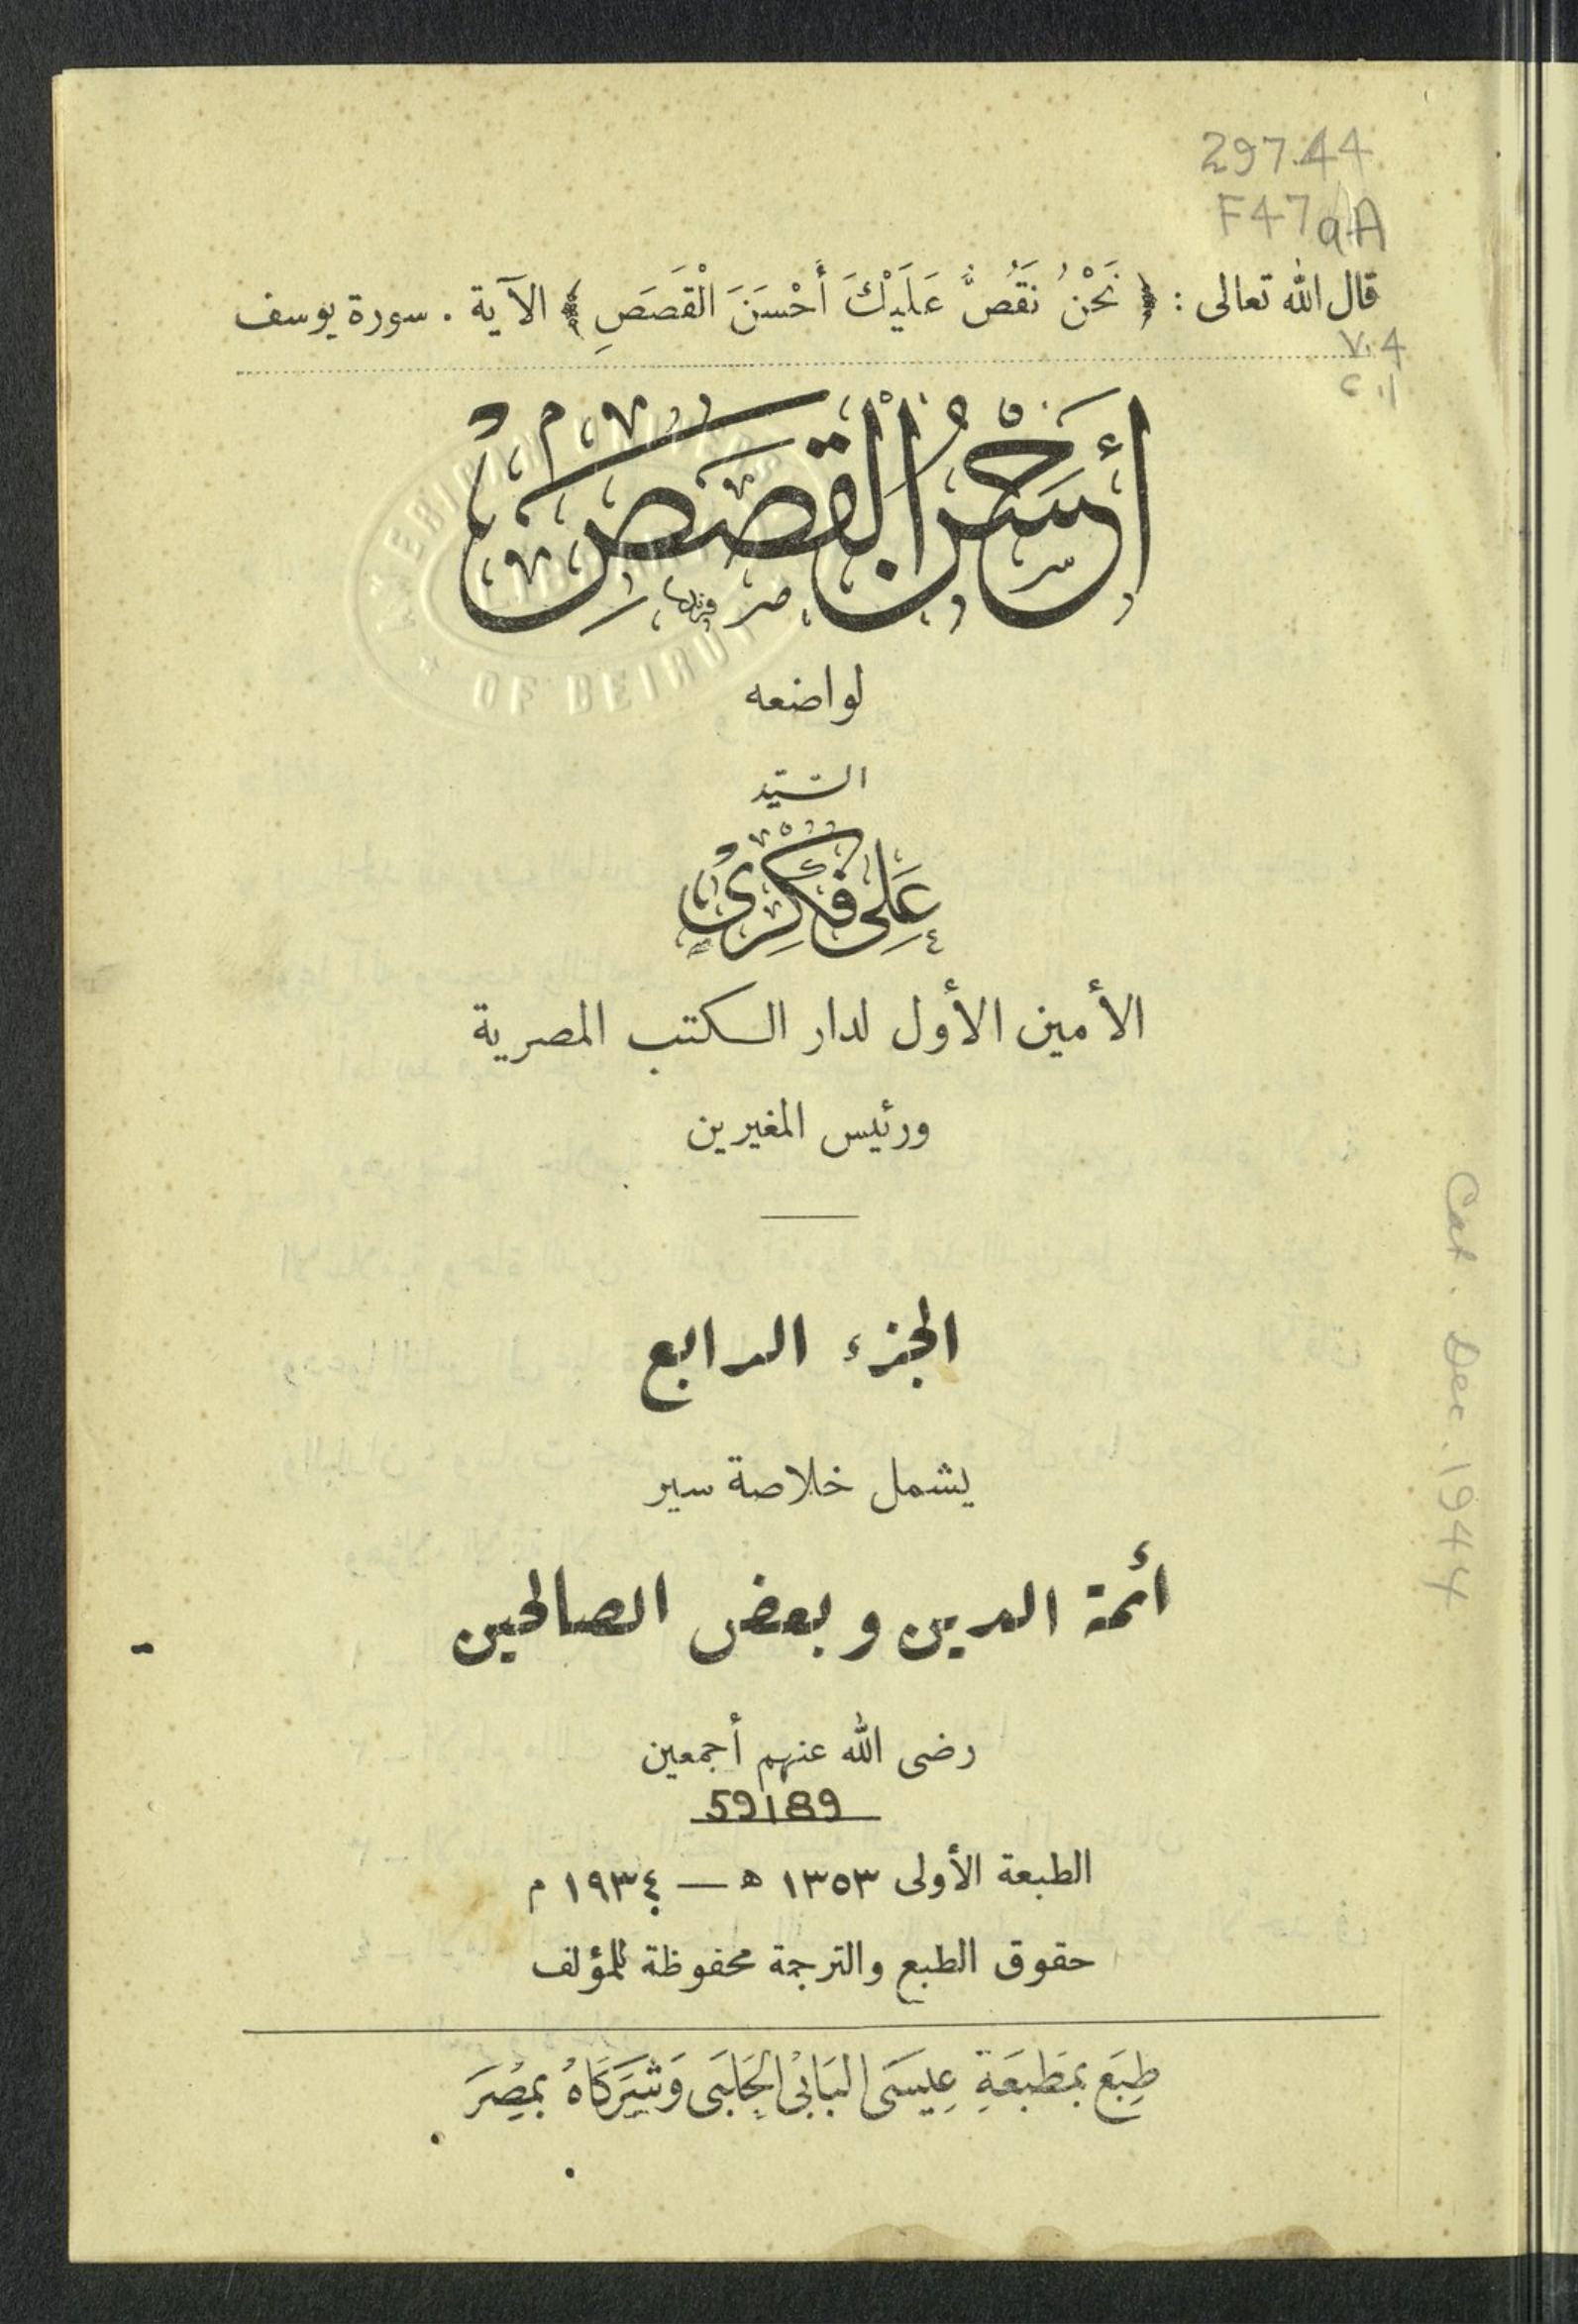 297.44
F47aA
قال الله تعالى : ﴿ نَحْنُ نَقُصُّ عَلَيْكَ أَحْسَنَ الْقَصَصِ ﴾ الآية . سورة يوسف
V.4
C.1
أَحْسَنُ الْقَصَصِ
لواضعه
السَّيِّد
عَلِى فِكْرِىْ
الأمين الأول لدار الكتب المصرية
ورئيس المغيرين
الجزء الرابع
يشمل خلاصة سير
أئمة الدين وبعض الصالحين
رضى الله عنهم أجمعين
59189
الطبعة الأولى ١٣٥٣ ه — ١٩٣٤ م
حقوق الطبع والترجمة محفوظة للمؤلف
طُبِعَ بِمَطْبَعَةِ عِيسَى البَابِىْ الحَلَبَى وَشُرَكَاهُ بِمِصْرَ
Cat. Dec. 1944
OF BEIRUT